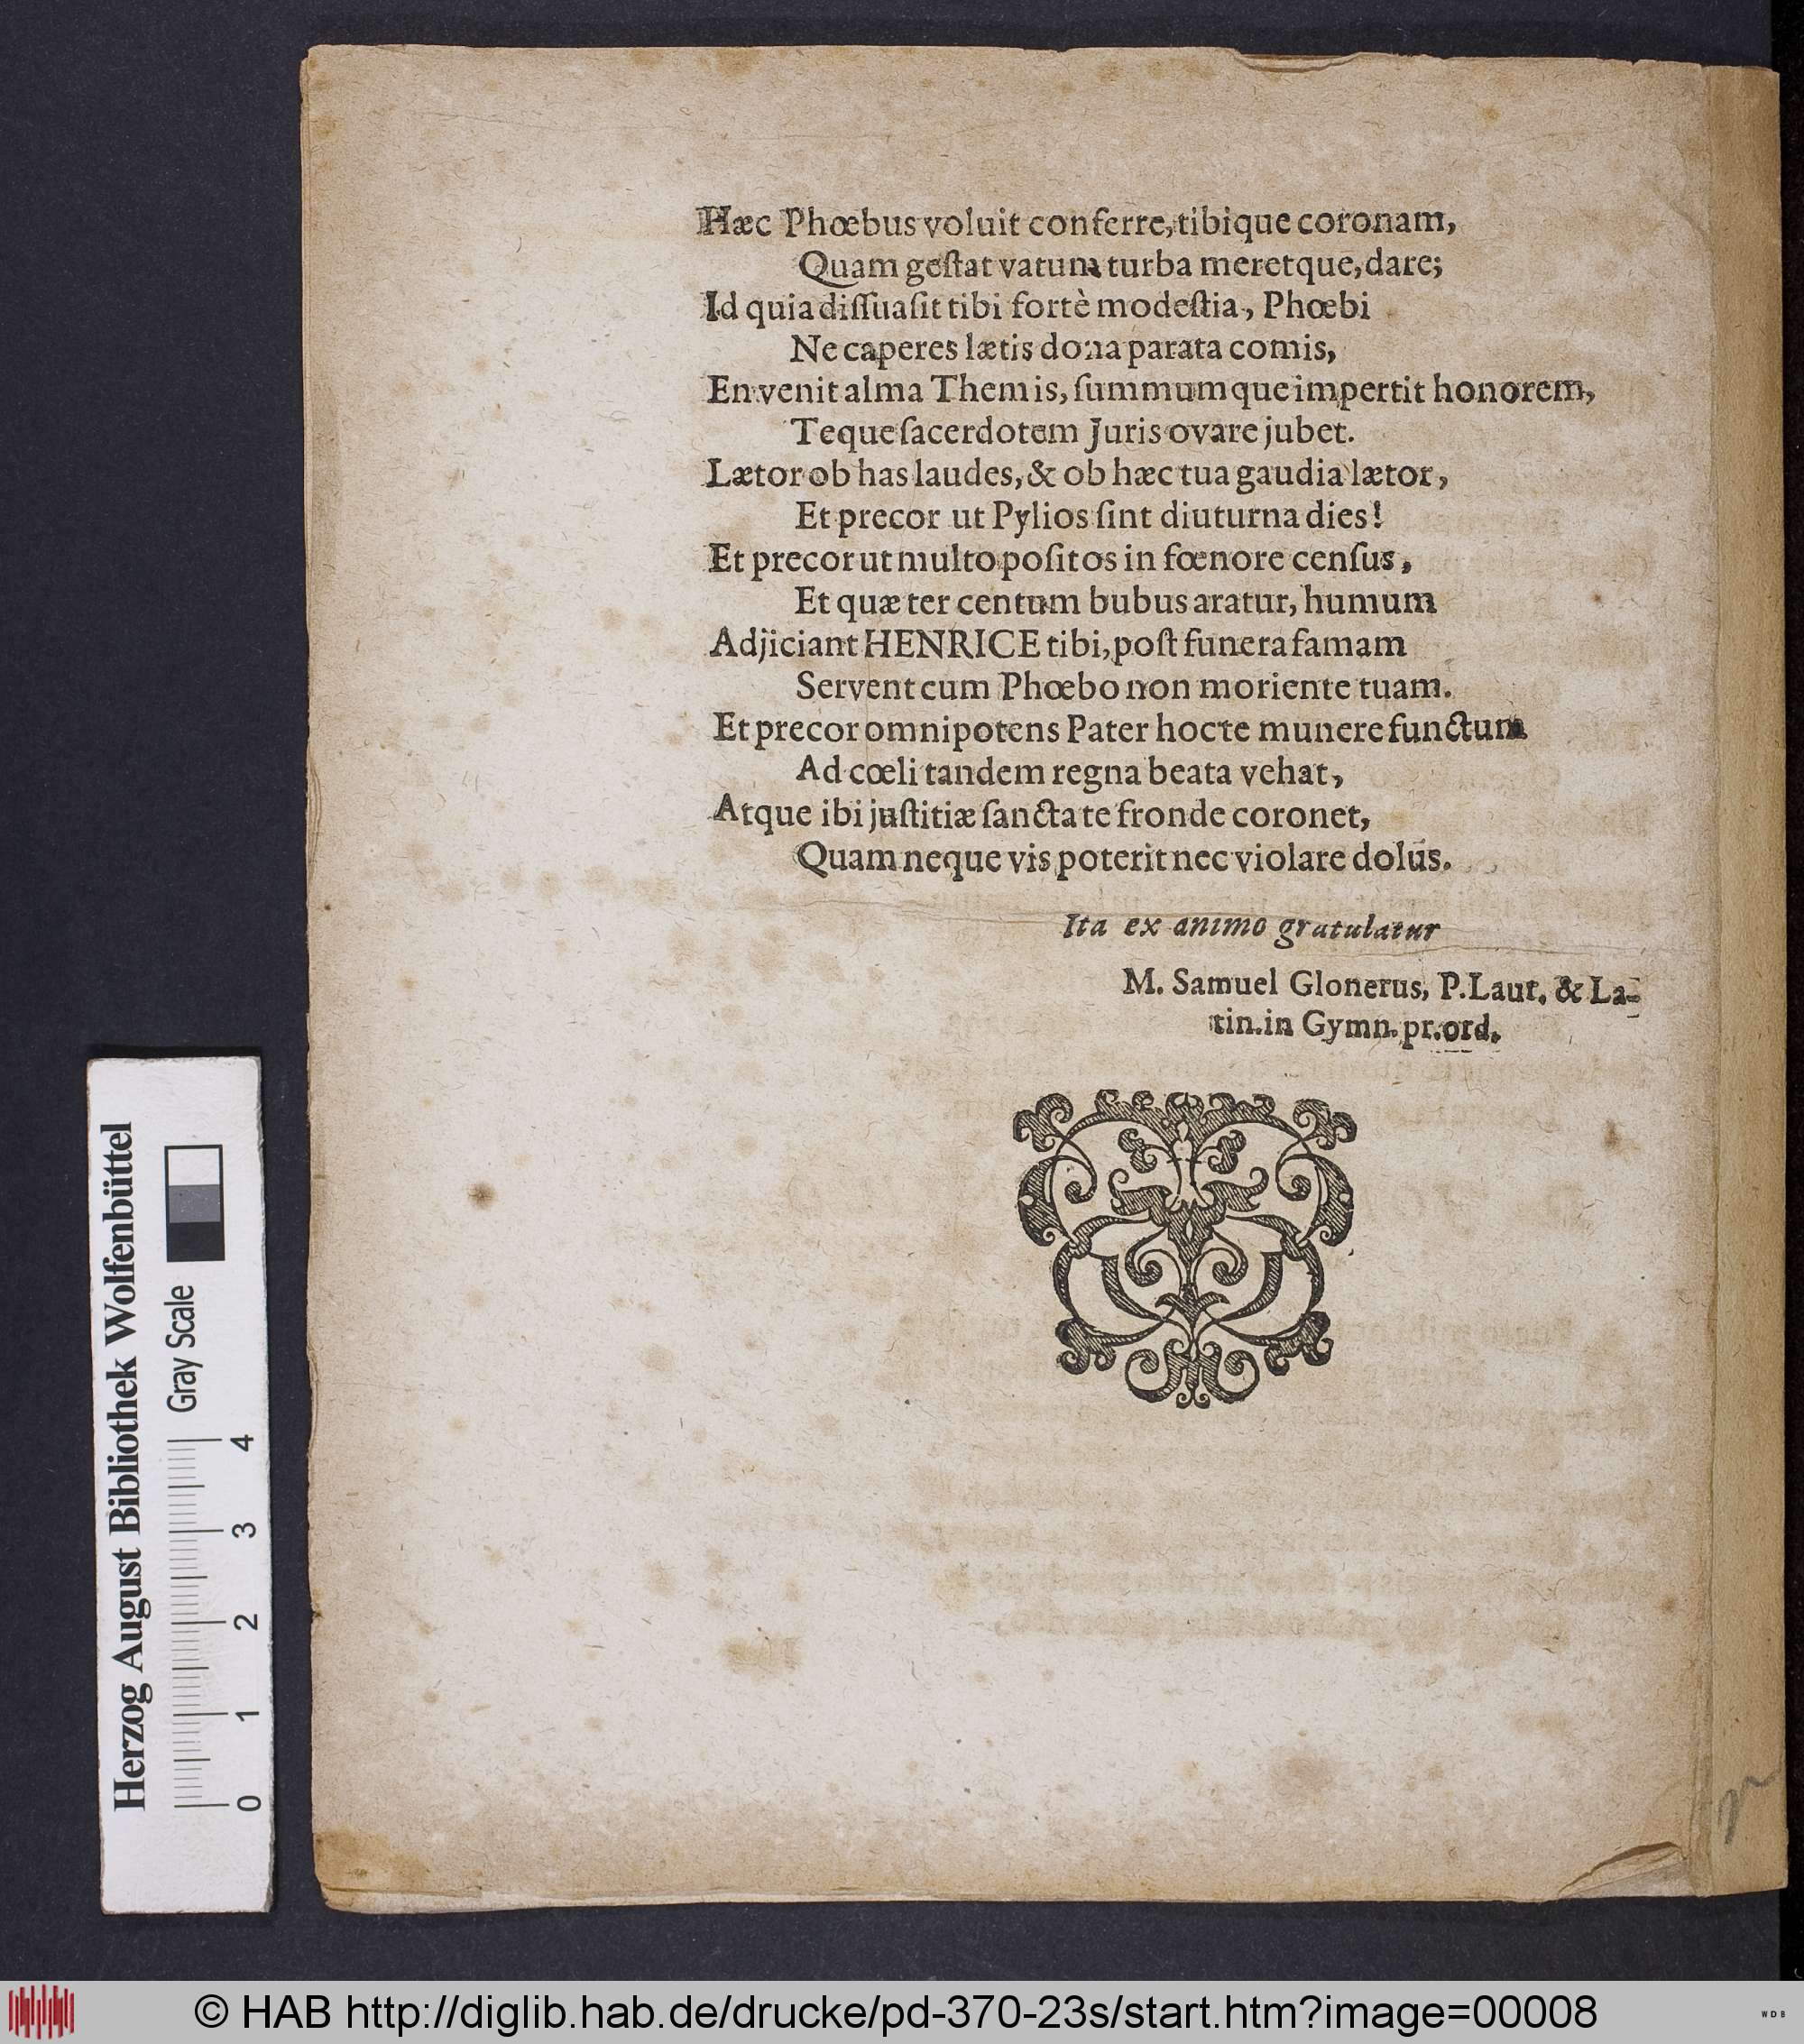 Hæc Phœbus voluit conferre, tibique coronam,
Quam geſtat vatum turba meretque, dare;
Id quia diſſuaſit tibi fortè modeſtia, Phœbi
Ne caperes lætis dona parata comis,
En venit alma Themis, ſummumque impertit honorem,
Teque ſacerdotem Juris ovare jubet.
Lætor ob has laudes, & ob hæc tua gaudia lætor,
Et precor ut Pylios ſint diuturna dies!
Et precor ut multo poſitos in fœnore cenſus,
Et quæ ter centum bubus aratur, humum
Adjiciant HENRICE tibi, poſt funera famam
Servent cum Phœbo non moriente tuam.
Et precor omnipotens Pater hoc te munere functum
Ad cœli tandem regna beata vehat,
Atque ibi juſtitiæ ſancta te fronde coronet,
Quam neque vis poterit nec violare dolus.
Ita ex animo gratulatur
M. Samuel Glonerus, P. Laur. & La-
tin. in Gymn. pr. ord.
Herzog August Bibliothek Wolfenbüttel
Gray Scale
0 1 2 3 4
© HAB http://diglib.hab.de/drucke/pd-370-23s/start.htm?image=00008
WDB